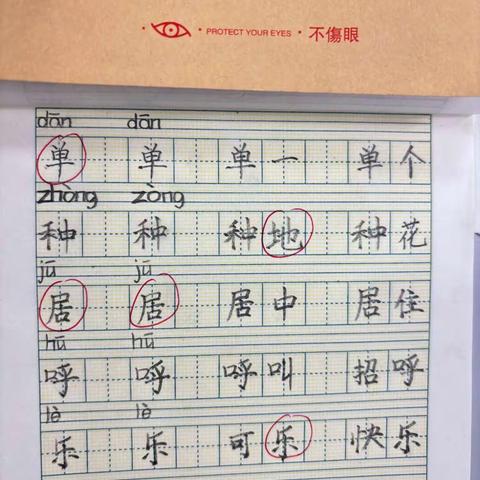 PROTECT YOUR EYES · 不傷眼
dān dān
单 单 单一 单个
zhòng zòng
种 种 种地 种花
jū jū
居 居 居中 居住
hū hū
呼 呼 呼叫 招呼
lè lè
乐 乐 可乐 快乐